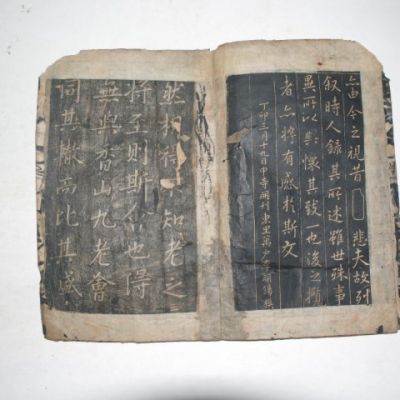 亦由今之視昔悲夫故列
叙時人録其所述雖世殊事
異所以興懷其致一也後之攬
者亦將有感於斯文
丁卯三月十九日
然相得不知老之
將至則斯會也得
無與香山九老會
同其轍高比其盛